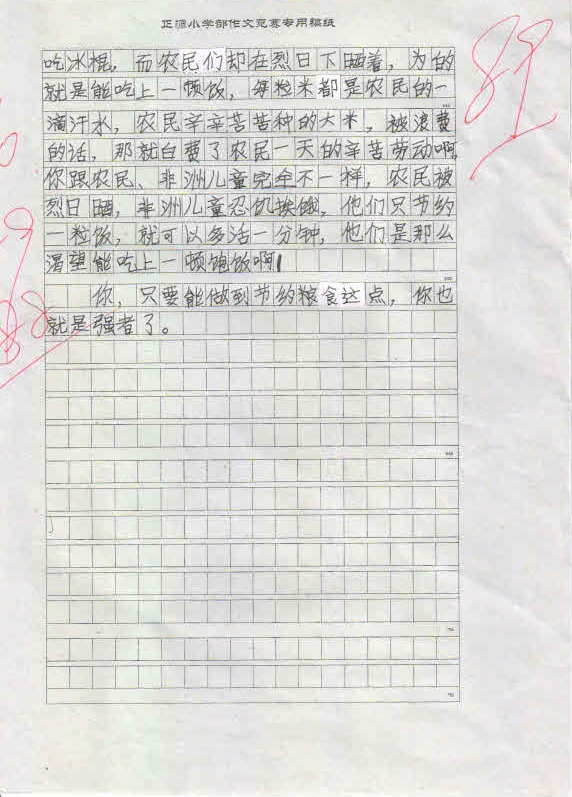 正源小学部作文竞赛专用稿纸
吃冰棍，而农民们却在烈日下晒着，为的
就是能吃上一顿饭，每粒米都是农民的一
滴汗水，农民辛辛苦苦种的大米，被浪费
的话，那就白费了农民一天的辛苦劳动啊，
你跟农民、非洲儿童完全不一样，农民被
烈日晒，非洲儿童忍饥挨饿，他们只节约
一粒饭，就可以多活一分钟，他们是那么
渴望能吃上一顿饱饭啊！
你，只要能做到节约粮食这点，你也
就是强者了。
89
88